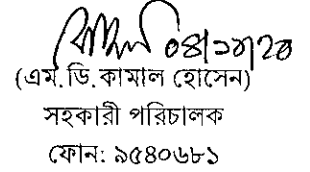 ০৪/১০/২০
(এম.ডি.কামাল হোসেন)
সহকারী পরিচালক
ফোন: ৯৫৪০৬৮১